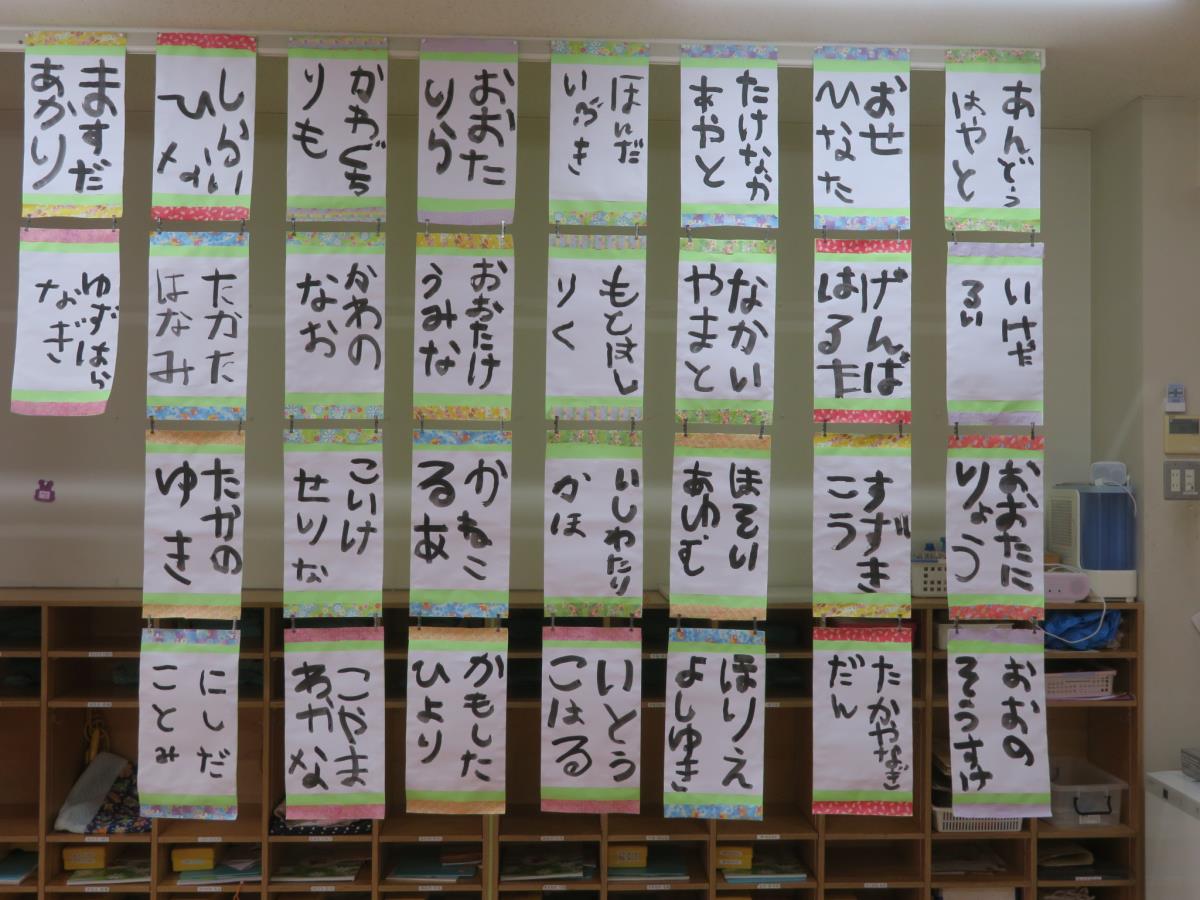 あんどう
はやと
いけだ
るい
おおたに
りょう
おおの
そうすけ
おせ
ひなた
げんば
はるた
すずき
こう
たかやなぎ
だん
たけなか
あやと
なかい
やまと
ほそい
あゆむ
ほりえ
よしゆき
ほんだ
いぶき
もとはし
りく
いしわたり
かほ
いとう
こはる
おおた
りら
おおたけ
うみな
かねこ
るあ
かもした
ひより
かわぐち
りも
かわの
なお
こいけ
せりな
こやま
わかな
しらい
ひな
たかた
はなみ
たかの
ゆき
にしだ
ことみ
ますだ
あかり
ゆずはら
なぎ